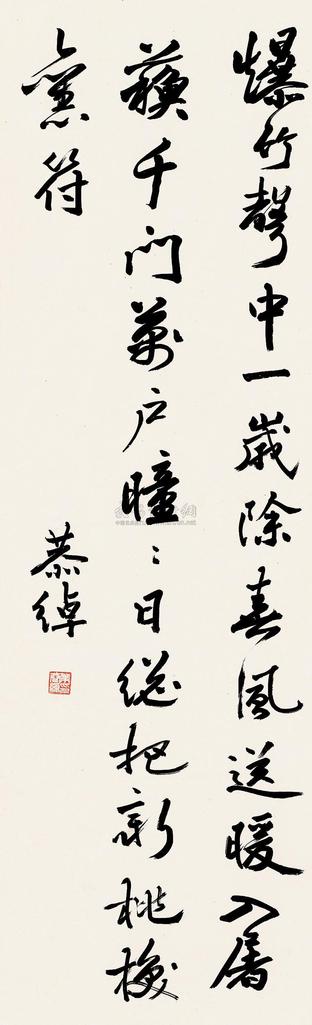 爆竹聲中一歲除春風送暖入屠
蘇千門萬戶曈〻日總把新桃換
舊符
恭綽